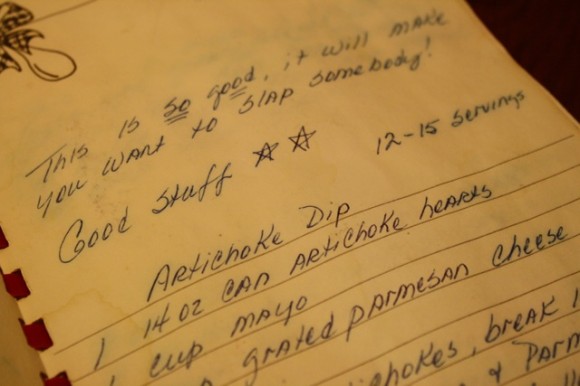 This is so good, it will make
you want to slap somebody!
Good Stuff ☆☆ 12-15 servings
Artichoke Dip
1 14 oz can artichoke hearts
1 cup mayo
grated parmesan cheese
break
& Parm